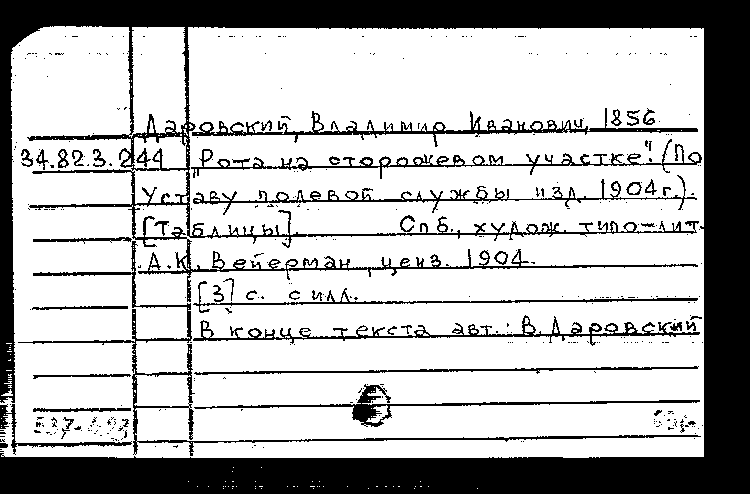 Даровский, Владимир Иванович, 1856
34.82.3.244 "Рота на сторожевом участке". (По
Уставу полевой службы изд. 1904г.).
[Таблицы]. Спб., худож. типо-лит.
А.К. Вейерман, ценз. 1904.
[3] с. с илл.
В конце текста авт.: В. Даровский